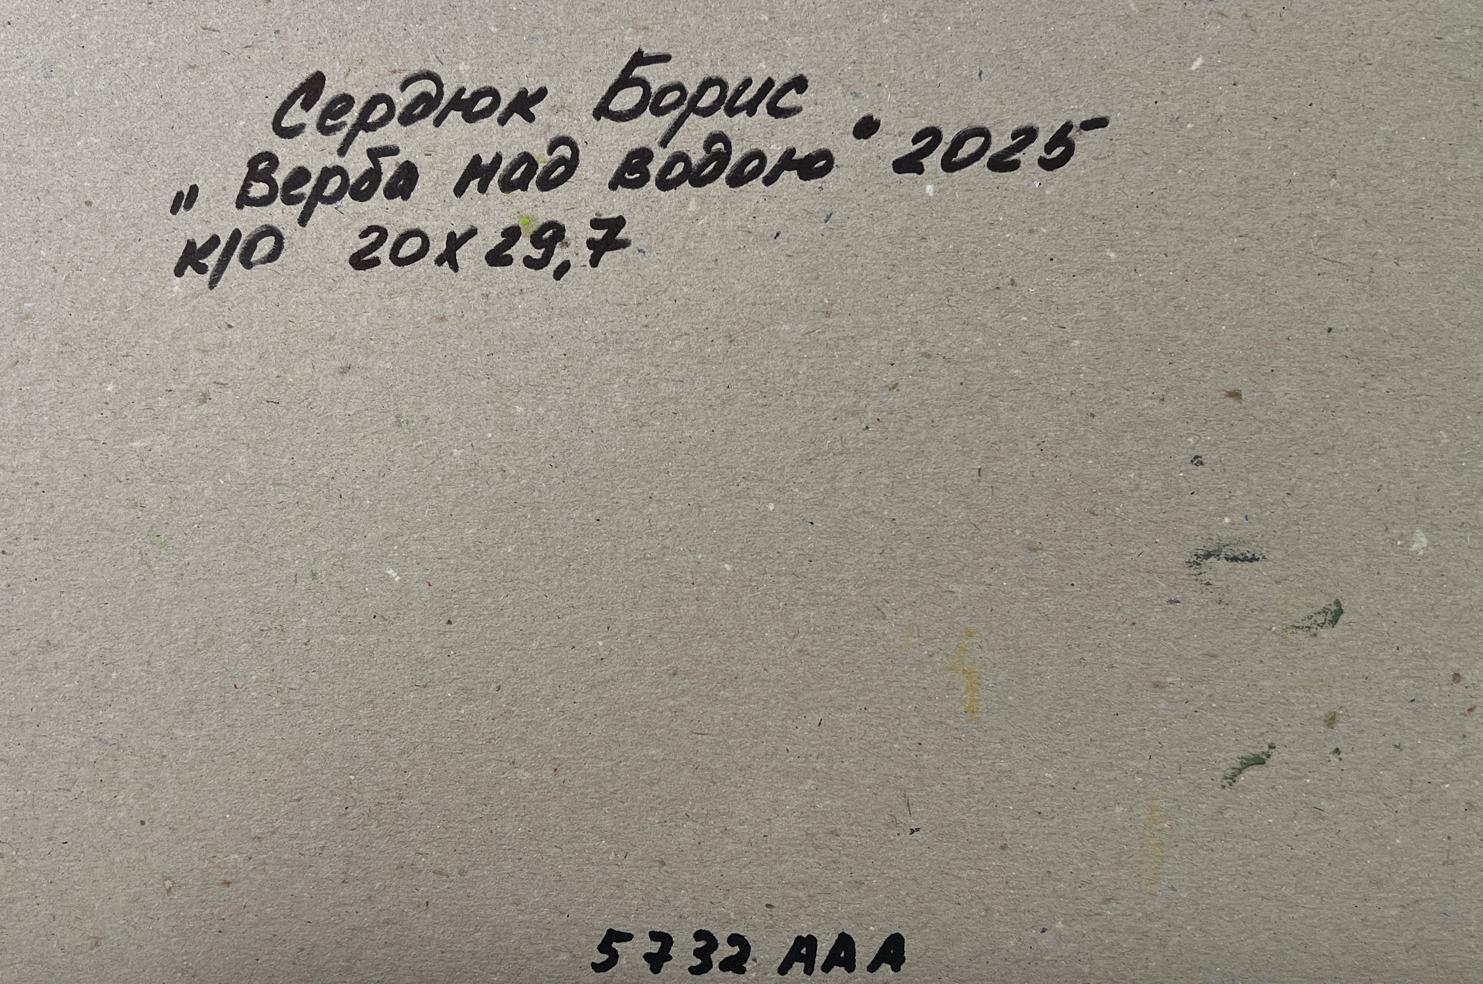 Сердюк Борис
„Верба над водою" 2025
К/О 20х29,7
5732 ААА